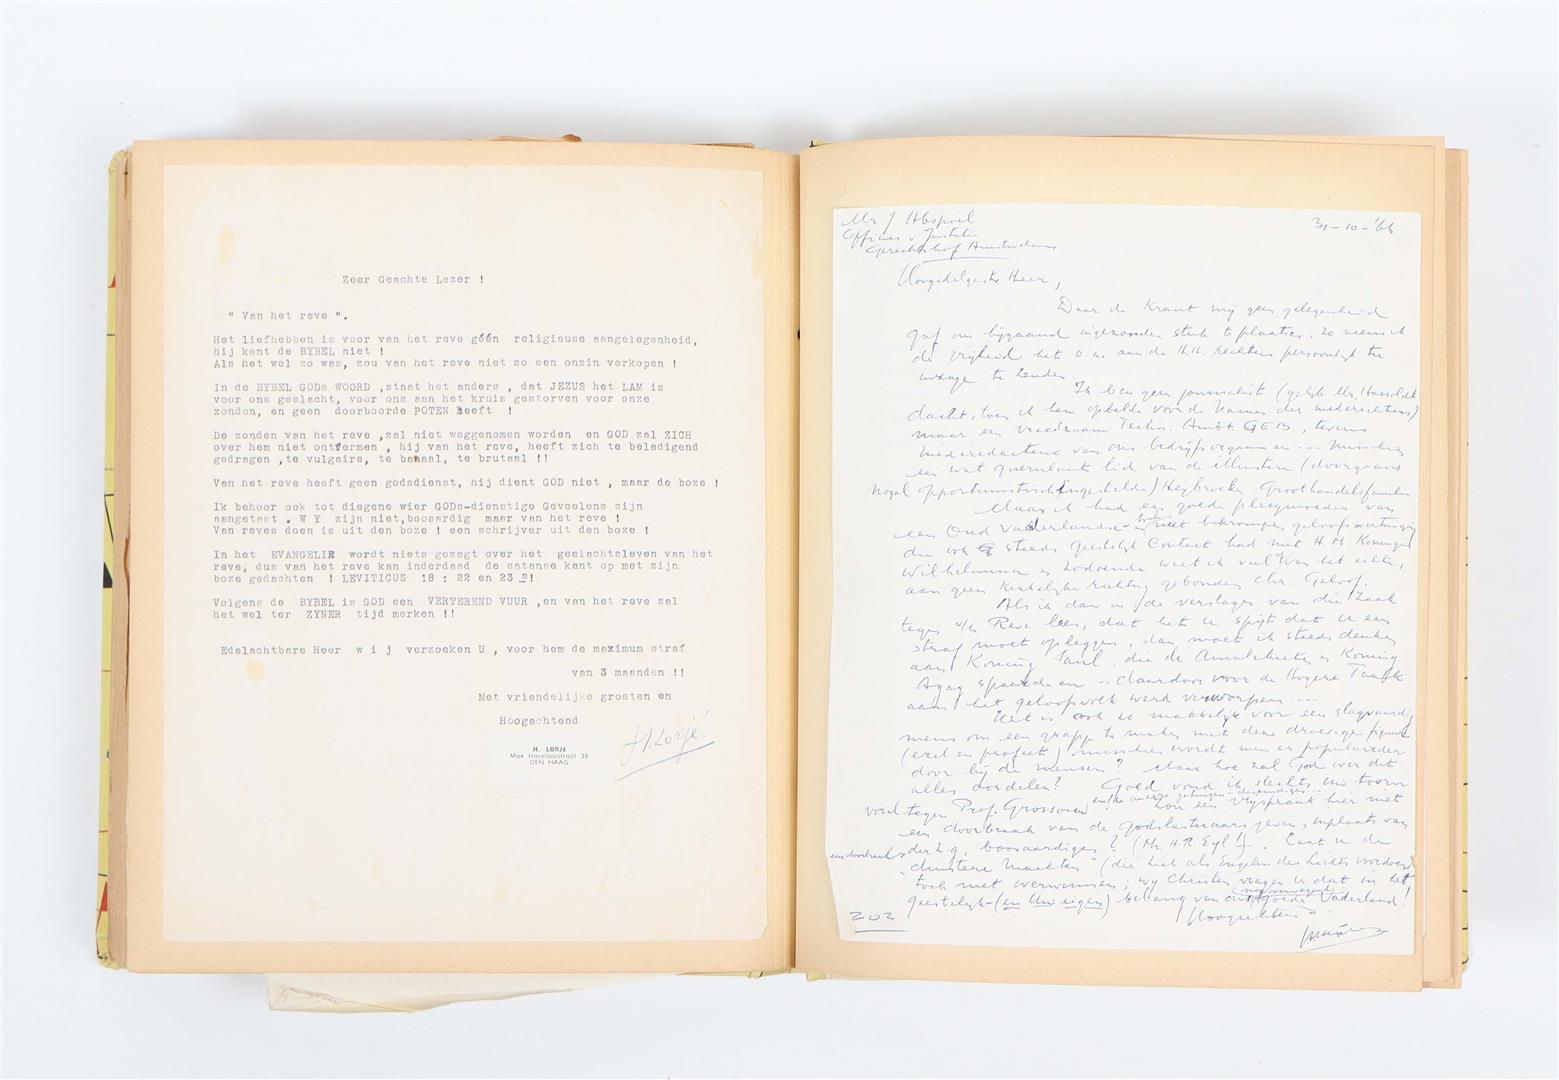 Zeer Geachte Lezer !
" Van het reve ".
Het liefhebben is voor van het reve géén religieuse aangelegenheid,
hij kent de BYBEL niet !
Als het wel zo was, zou van het reve niet zo een onzin verkopen !
In de BYBEL GODs WOORD ,staat het anders , dat JEZUS het LAM is
voor ons geslacht, voor ons aan het kruis gestorven voor onze
zonden, en geen doorboorde POTEN heeft !
De zonden van het reve ,zal niet weggenomen worden en GOD zal ZICH
over hem niet ontfermen , hij van het reve, heeft zich te beledigend
gedragen ,te vulgaire, te banaal, te brutaal !!
Van het reve heeft geen godsdienst, hij dient GOD niet , maar de boze !
Ik behoor ook tot diegene wier GODs-dienstige Gevoelens zijn
aangetast . W Y zijn niet,boosardig maar van het reve !
Van reves doen is uit den boze ! een schrijver uit den boze !
In het EVANGELIE wordt niets gezegt over het geslachtsleven van het
reve, dus van het reve kan inderdaad de satanse kant op met zijn
boze gedachten ! LEVITICUS 18 : 22 en 23 !
Volgens de BYBEL is GOD een VERTEREND VUUR ,en van het reve zal
het wel ter ZYNER tijd merken !!
Edelachtbare Heer w i j verzoeken U , voor hem de maximum straf
van 3 maanden !!
Met vriendelijke groeten en
Hoogachtend
H. LORJE
Max Havelaarstraat 38
DEN HAAG
H. Lorjé!
Mr. J Abspoel 31-10-'66
Officier v Justitie
Gerechtshof Amsterdam
Hoogedelgestr Heer,
Daar de Krant mij geen gelegenheid
gaf om bijgaand ingezonden stuk te plaatsen, zo neem ik
de vrijheid het o.a. aan de H.H. Rechters persoonlijk ter
inzage te zenden
Ik ben geen journalist (gelijk Mr.
dacht, toen ik hem opbelde voor de Namen der mederechters)
maar een vreedzaam Techn. Ambt. G E B., tevens
mederedacteur van ons bedrijfsorgaan en ... misschien
een wat querulante lid van de illustere (doorgaans
nogal opportunistisch ingestelde) Heybroek Groothandelsfamilie.
Maar ik had een goede pleegmoeder van
een Oud vaderlandse niet bekrompen geloofsovertuiging
die ook steeds geestelijk Contact had met H.M. Koningin
Wilhelmina en zodoende weet ik veel van het echte,
aan geen kerkelijke richting gebonden Chr. Geloof.
Als ik dan in de verslagen van die zaak
tegen v/h Reve lees, dat het U spijt dat U een
straf moet opleggen, dan moet ik steeds denken
aan Koning Saul, die de Amalekieten en Koning
Agag spaarde en ... daardoor voor de hogere Taak
aan het geloofsvolk werd verworpen ...
Het is ook zo makkelijk voor een slagvaardig
mens om een grapje te maken met deze droevige figuur
(ezel en profeet) misschien wordt men er populairder
door bij de mensen? Maar hoe zal God over dit
alles oordelen? Goed vond ik slechts Uw toorn
tegen Prof. en de andere getuigen Zou een vrijspraak hier niet
een doorbraak van de godslasteraars geven, inplaats van
der z.g. boosaardigen? (Mr. H.R. Eyl!). Laat U de
"duistere machten" (die zich als Engelen des Lichts voordoen)
toch niet overwinnen; wij Christen vragen U dat in het
geestelijk- (en Uw eigen) belang van ons goede Vaderland!
202 Hoogachtend